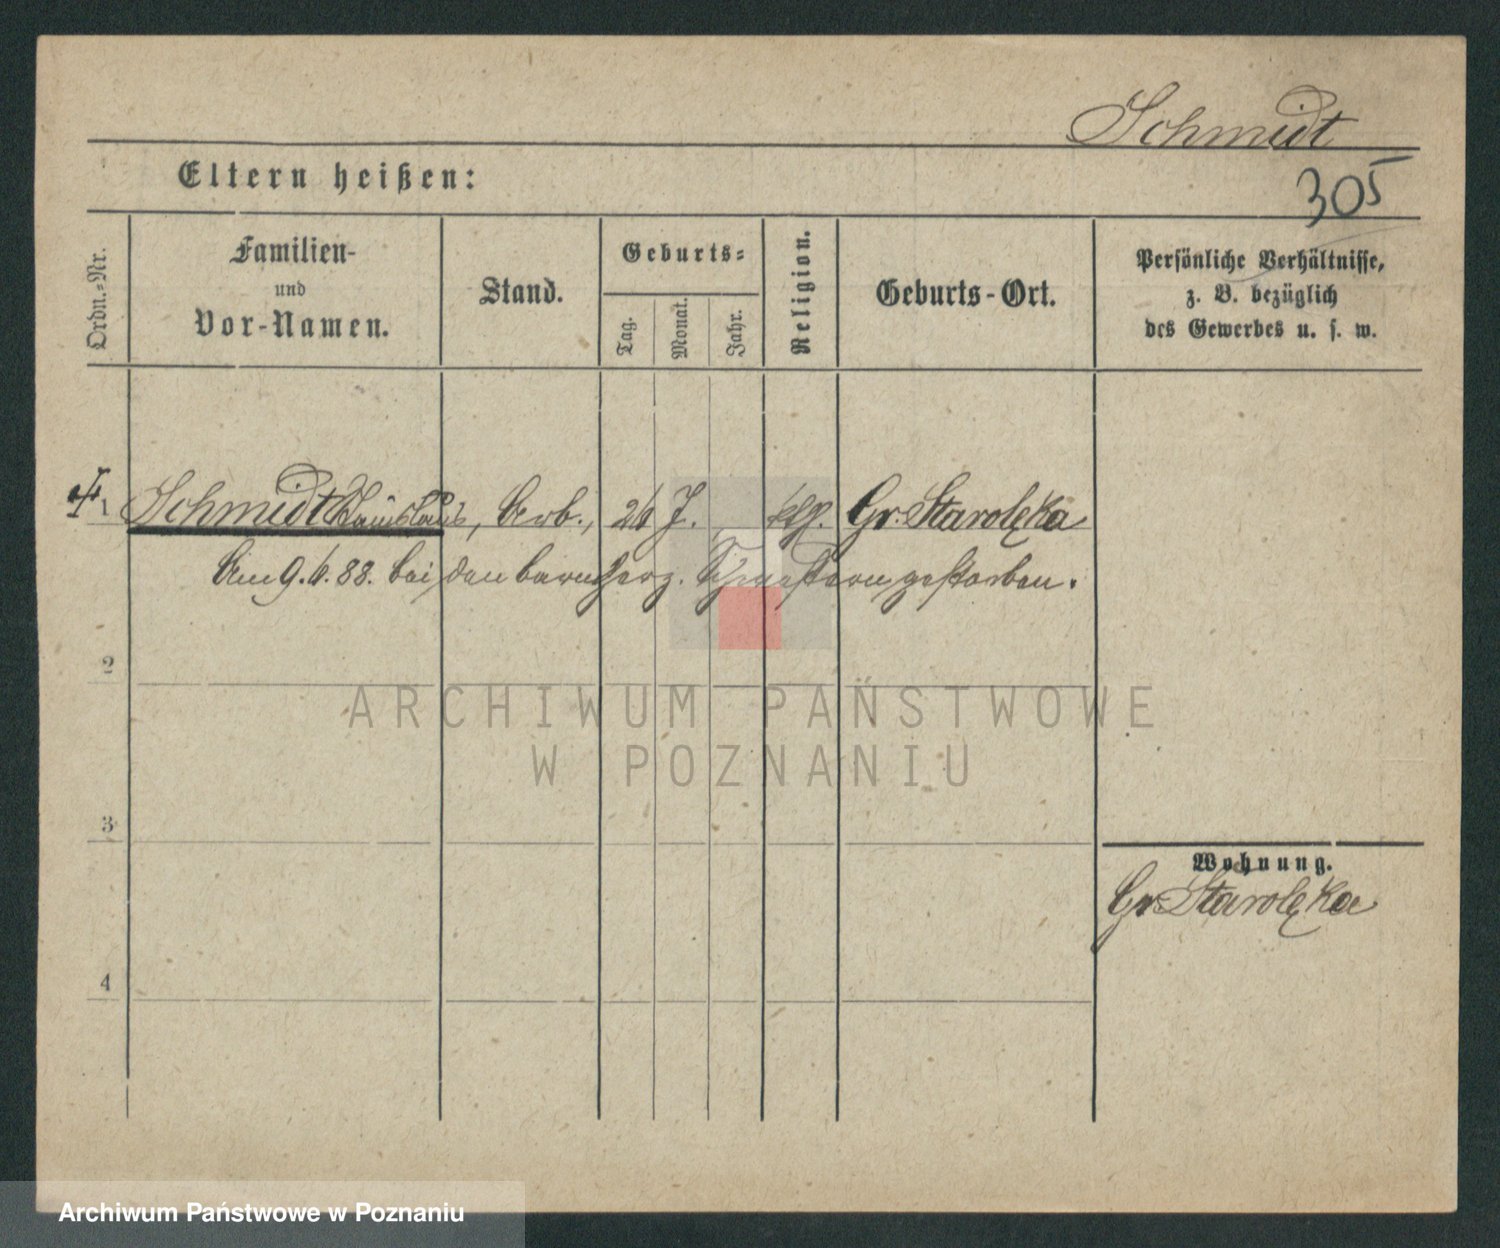 Schmidt
305
Eltern heißen:
Ordn.-Nr.
Familien-
und
Vor-Namen.
Stand.
Geburts-
Tag.
Monat.
Jahr.
Religion.
Geburts-Ort.
Persönliche Verhältnisse,
z. B. bezüglich
des Gewerbes u. s. w.
1 Schmidt Stanislaus, Arb., 26 J. klh. Gr. Starolęka
Am 9.6.88. bei den barmherz. Schwestern gestorben.
2
ARCHIWUM PAŃSTWOWE
W POZNANIU
3
Wohnung.
Gr. Starolęka
4
Archiwum Państwowe w Poznaniu